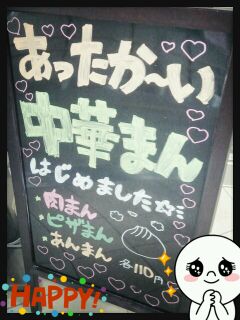 あったか〜い
中華まん
はじめました☆ミ
・肉まん
・ピザまん
・あんまん
各110円
HAPPY!